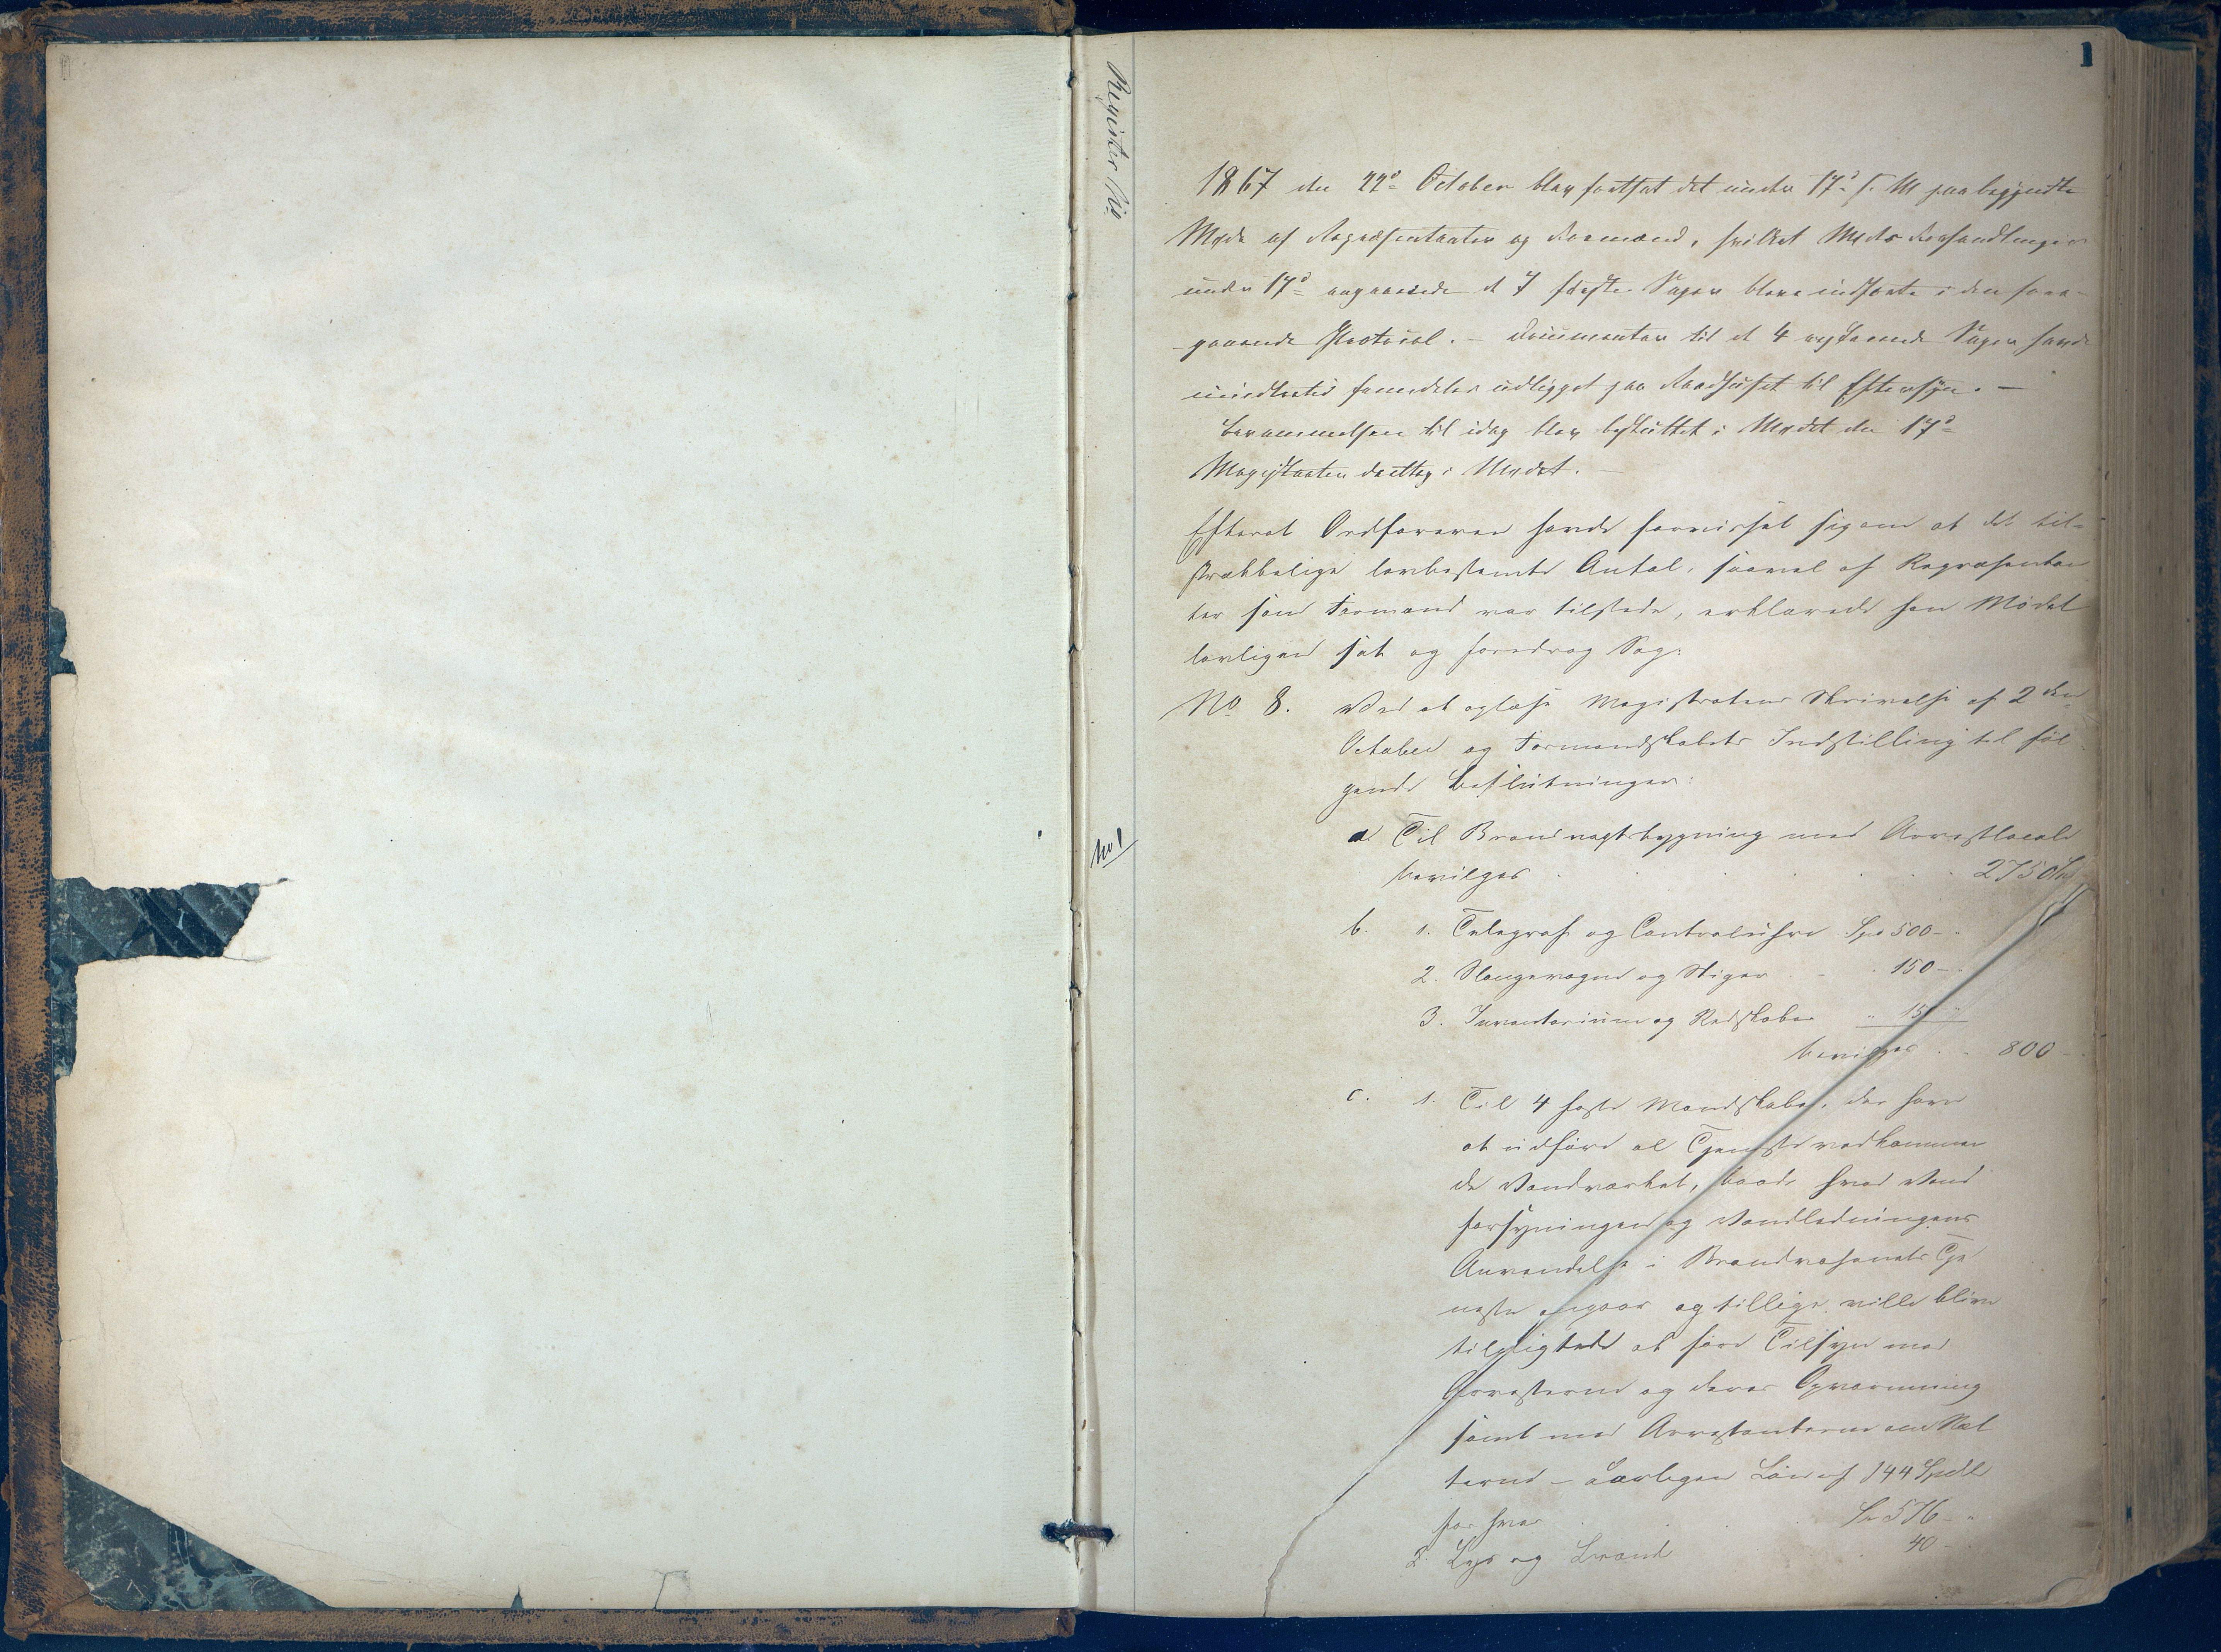 1
Register No
1867 den 22de October blev fortsat det under 17de s. M. paabegyndte
Møde af Repræsentanter og Formænd, hvilket Møds Forhandlinger
under 17de angaaende de 7 første Sager bleve indførte i den fore-
gaaende Protocol. – Documenter til de 4 resterende Sager havde
imidlertid fremdeles udligget paa Raadhuset til Eftersyn. –
Berammelsen til idag blev besluttet i Mødet den 17de
Magistraten deeltog i Mødet. –
Efterat Ordføreren havde forvisset sig om at det til-
strækkelige lovbestemte Antal, saavel af Repræsentan
ter som Formænd var tilstede, erklærede han Mødet
lovligen sat og foredrog Sag:
No 8. Ved at oplæse Magistratens Skrivelse af 2den
October og Formandskabets Indstilling til føl
gende Beslutninger:
No 1
a Til Brandvagtsbygning med Arrestlocale
bevilges 2750 Sp
b. 1. Telegraf og Contraluhre Spd 500 –
2. Slangevogne og Stiger – 150 –
3. Inventarium og Redskaber " 150 "
bevilges 800 –
c. 1. Til 4 faste Mandskaber, der have
at udføre al Tjeneste vedkommen
de Vandværket, baade hvad Vand
forsyningen og Vandledningens
Anvendelse i Brandvæsenets Tje
neste angaar og tillige ville blive
tilpligtede at føre Tilsyn med
Arresterne og deres Opvarmning
samt med Arrestanterne om Næt
terne – aarligen Løn af 144 Spdl
for hver Sp 576 – "
2. Lys og Brænde 40 –